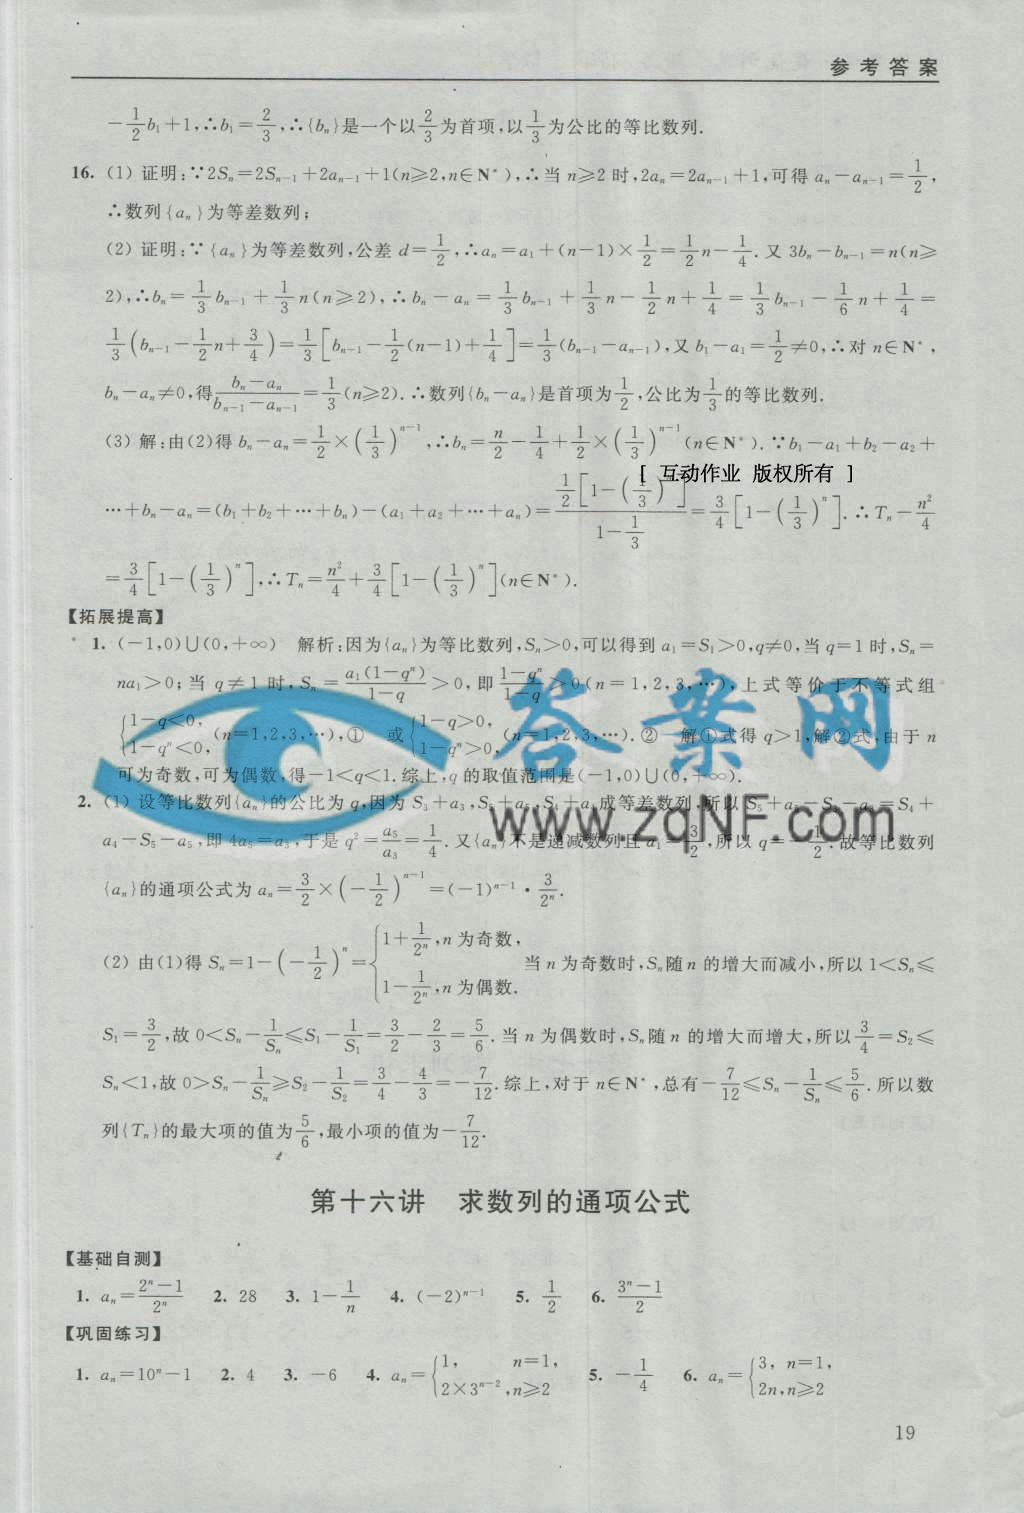 参考答案
-\frac{1}{2}b₁+1,∴b₁=\frac{2}{3},∴{bₙ}是一个以\frac{2}{3}为首项,以\frac{1}{3}为公比的等比数列.
16. (1) 证明:∵2Sₙ=2Sₙ₋₁+2aₙ₋₁+1(n≥2,n∈N*),∴当 n≥2 时,2aₙ=2aₙ₋₁+1,可得 aₙ-aₙ₋₁=\frac{1}{2},
∴数列{aₙ}为等差数列;
(2) 证明:∵{aₙ}为等差数列,公差 d=\frac{1}{2},∴aₙ=a₁+(n-1)×\frac{1}{2}=\frac{1}{2}n-\frac{1}{4}.又 3bₙ-bₙ₋₁=n(n≥
2),∴bₙ=\frac{1}{3}bₙ₋₁+\frac{1}{3}n(n≥2),∴bₙ-aₙ=\frac{1}{3}bₙ₋₁+\frac{1}{3}n-\frac{1}{2}n+\frac{1}{4}=\frac{1}{3}bₙ₋₁-\frac{1}{6}n+\frac{1}{4}=
\frac{1}{3}(bₙ₋₁-\frac{1}{2}n+\frac{3}{4})=\frac{1}{3}[bₙ₋₁-\frac{1}{2}(n-1)+\frac{1}{4}]=\frac{1}{3}(bₙ₋₁-aₙ₋₁),又 b₁-a₁=\frac{1}{2}≠0,∴对 n∈N*,
bₙ-aₙ≠0,得\frac{bₙ-aₙ}{bₙ₋₁-aₙ₋₁}=\frac{1}{3}(n≥2).∴数列{bₙ-aₙ}是首项为\frac{1}{2},公比为\frac{1}{3}的等比数列.
(3) 解:由(2)得 bₙ-aₙ=\frac{1}{2}×(\frac{1}{3})^{n-1},∴bₙ=\frac{n}{2}-\frac{1}{4}+\frac{1}{2}×(\frac{1}{3})^{n-1}(n∈N*).∵b₁-a₁+b₂-a₂+
[ 互动作业 版权所有 ]
…+bₙ-aₙ=(b₁+b₂+…+bₙ)-(a₁+a₂+…+aₙ)=\frac{\frac{1}{2}[1-(\frac{1}{3})^n]}{1-\frac{1}{3}}=\frac{3}{4}[1-(\frac{1}{3})^n].∴Tₙ-\frac{n²}{4}
=\frac{3}{4}[1-(\frac{1}{3})^n],∴Tₙ=\frac{n²}{4}+\frac{3}{4}[1-(\frac{1}{3})^n](n∈N*).
【拓展提高】
1. (-1,0)∪(0,+∞) 解析:因为{aₙ}为等比数列,Sₙ>0,可以得到 a₁=S₁>0,q≠0,当 q=1 时,Sₙ=
na₁>0;当 q≠1 时,Sₙ=\frac{a₁(1-qⁿ)}{1-q}>0,即\frac{1-qⁿ}{1-q}>0(n=1,2,3,…),上式等价于不等式组
{1-q<0, 1-qⁿ<0, (n=1,2,3,…),① 或{1-q>0, 1-qⁿ>0, (n=1,2,3,…).② 解①式得 q>1,解②式,由于 n
可为奇数,可为偶数,得-1<q<1.综上,q的取值范围是(-1,0)∪(0,+∞).
答案网
www.zqNF.com
2. (1) 设等比数列{aₙ}的公比为 q,因为 S₃+a₃,S₅+a₅,S₄+a₄成等差数列,所以 S₅+a₅-S₃-a₃=S₄+
a₄-S₅-a₅,即 4a₅=a₃,于是 q²=\frac{a₅}{a₃}=\frac{1}{4}.又{aₙ}不是递减数列且 a₁=\frac{3}{2},所以 q=-\frac{1}{2}.故等比数列
{aₙ}的通项公式为 aₙ=\frac{3}{2}×(-\frac{1}{2})^{n-1}=(-1)^{n-1}·\frac{3}{2ⁿ}.
(2) 由(1)得 Sₙ=1-(-\frac{1}{2})^n={1+\frac{1}{2ⁿ},n 为奇数, 1-\frac{1}{2ⁿ},n 为偶数. 当 n 为奇数时,Sₙ随 n 的增大而减小,所以 1<Sₙ≤
S₁=\frac{3}{2},故 0<Sₙ-\frac{1}{Sₙ}≤S₁-\frac{1}{S₁}=\frac{3}{2}-\frac{2}{3}=\frac{5}{6}.当 n 为偶数时,Sₙ随 n 的增大而增大,所以\frac{3}{4}=S₂≤
Sₙ<1,故 0>Sₙ-\frac{1}{Sₙ}≥S₂-\frac{1}{S₂}=\frac{3}{4}-\frac{4}{3}=-\frac{7}{12}.综上,对于 n∈N*,总有-\frac{7}{12}≤Sₙ-\frac{1}{Sₙ}≤\frac{5}{6}.所以数
列{Tₙ}的最大项的值为\frac{5}{6},最小项的值为-\frac{7}{12}.
第十六讲 求数列的通项公式
【基础自测】
1. aₙ=\frac{2ⁿ-1}{2ⁿ} 2. 28 3. 1-\frac{1}{n} 4. (-2)^{n-1} 5. \frac{1}{2} 6. \frac{3ⁿ-1}{2}
【巩固练习】
1. aₙ=10ⁿ-1 2. 4 3. -6 4. aₙ={1, n=1, 2×3^{n-2},n≥2 5. -\frac{1}{4} 6. aₙ={3, n=1, 2n,n≥2
19